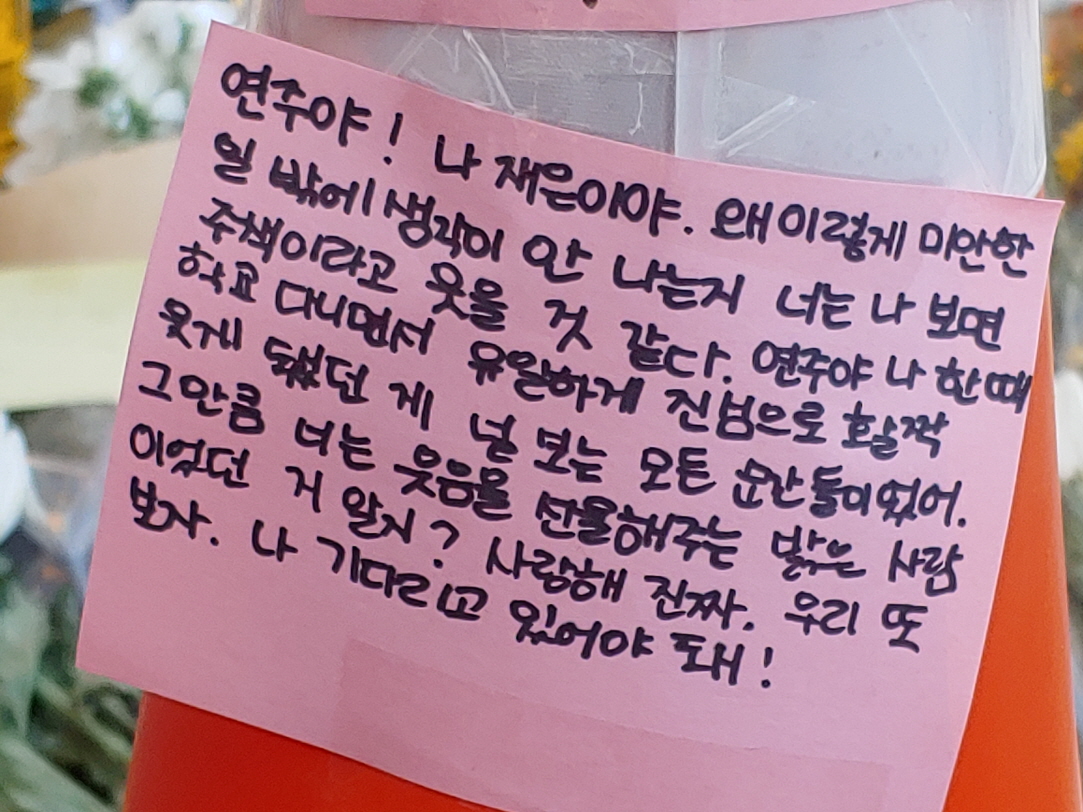 연주야! 나 재은이야. 왜 이렇게 미안한
일 밖에 생각이 안 나는지 너는 나 보면
주책이라고 웃을 것 같다. 연주야 나 한때
학교 다니면서 유일하게 진심으로 활짝
웃게 됐던 게 널 보는 모든 순간들이었어.
그만큼 너는 웃음을 선물해주는 밝은 사람
이었던 거 알지? 사랑해 진짜. 우리 또
보자. 나 기다리고 있어야 돼!